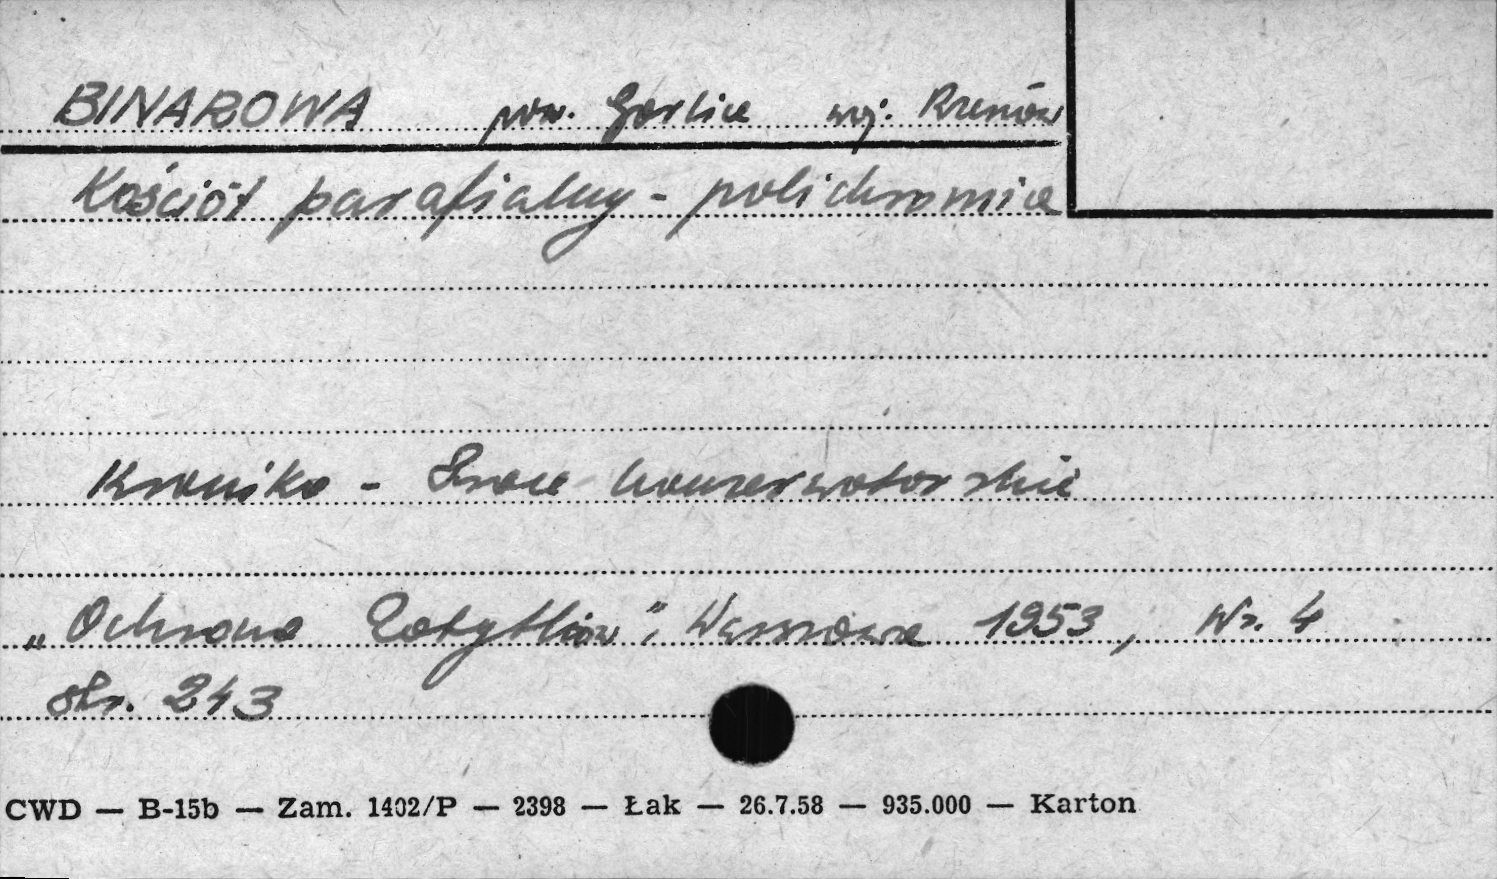 BINAROWA pow. Gorlice woj. Rzeszów
Kościół parafialny - polichromia
Kronika - Prace konserwatorskie
„Ochrona Zabytków", Warszawa 1953, Nr. 4
str. 243
CWD — B-15b — Zam. 1402/P — 2398 — Łak — 26.7.58 — 935.000 — Karton